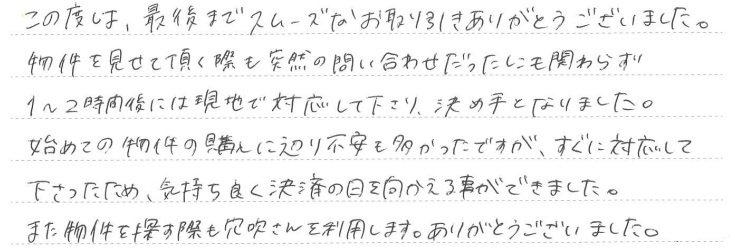 この度は、最後までスムーズなお取り引きありがとうございました。
物件を見せて頂く際も突然の問い合わせだったにも関わらず
1~2時間後には現地で対応して下さり、決め手となりました。
始めての物件の購入に辺り不安も多かったですが、すぐに対応して
下さったため、気持ち良く決済の日を向かえる事ができました。
また物件を探す際も穴吹さんを利用します。ありがとうございました。